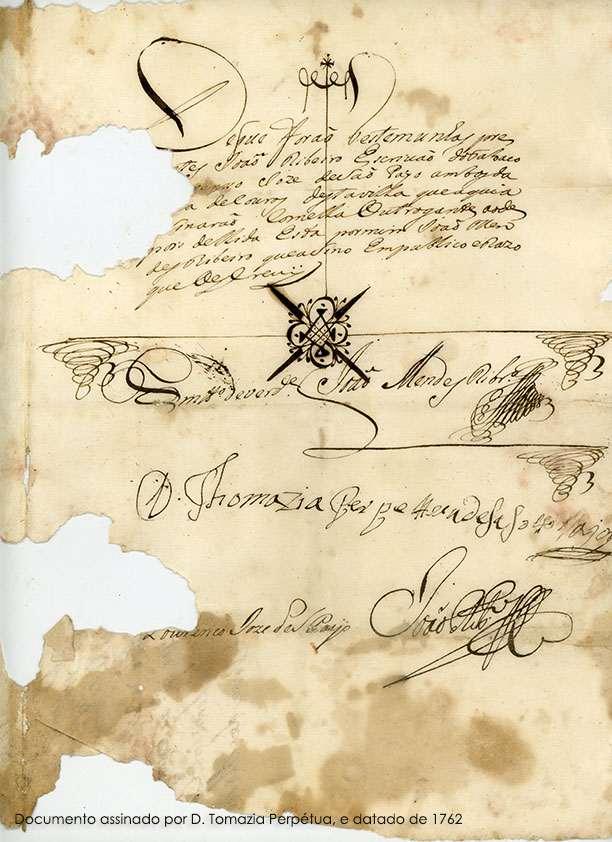 De que forão testemunhas pre
tes João Ribeiro Escrivão do tabaco
Loze de São Payo ambos da
de Couros desta villa que aqui a
narão Com ella Outrogante a
por ella lida Esta por mim João Men
des Ribeiro que asino Em publico e Razo
que Escrevij
Em tto. de verd.e João Mendes Ribr.o
D. Thomazia Perpetua de S
Lourenço Joze de S Payo
João Ribr.o
Documento assinado por D. Tomazia Perpétua, e datado de 1762